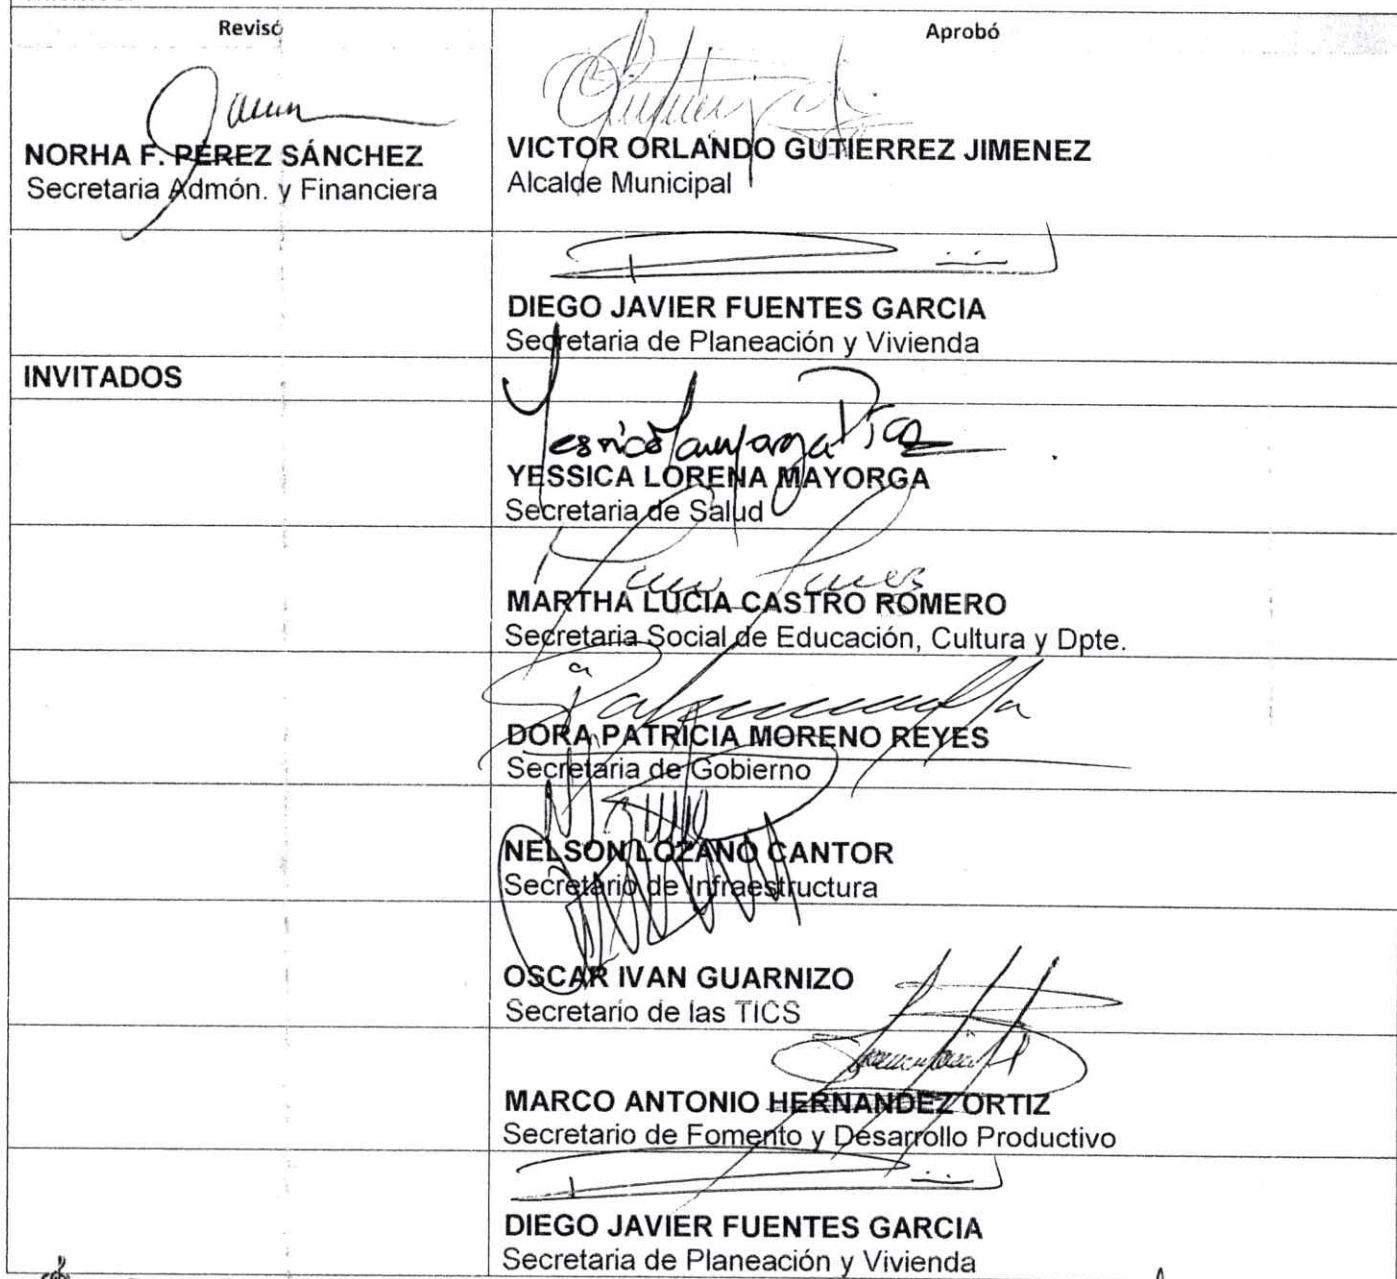 Revisó
Aprobó
NORHA F. PEREZ SÁNCHEZ
Secretaria Admón. y Financiera
VICTOR ORLANDO GUTIERREZ JIMENEZ
Alcalde Municipal
DIEGO JAVIER FUENTES GARCIA
Secretaria de Planeación y Vivienda
INVITADOS
Yessica Mayorga Díaz
YESSICA LORENA MAYORGA
Secretaria de Salud
MARTHA LUCIA CASTRO ROMERO
Secretaria Social de Educación, Cultura y Dpte.
DORA PATRICIA MORENO REYES
Secretaria de Gobierno
NELSON LOZANO CANTOR
Secretario de Infraestructura
OSCAR IVAN GUARNIZO
Secretario de las TICS
MARCO ANTONIO HERNANDEZ ORTIZ
Secretario de Fomento y Desarrollo Productivo
DIEGO JAVIER FUENTES GARCIA
Secretaria de Planeación y Vivienda